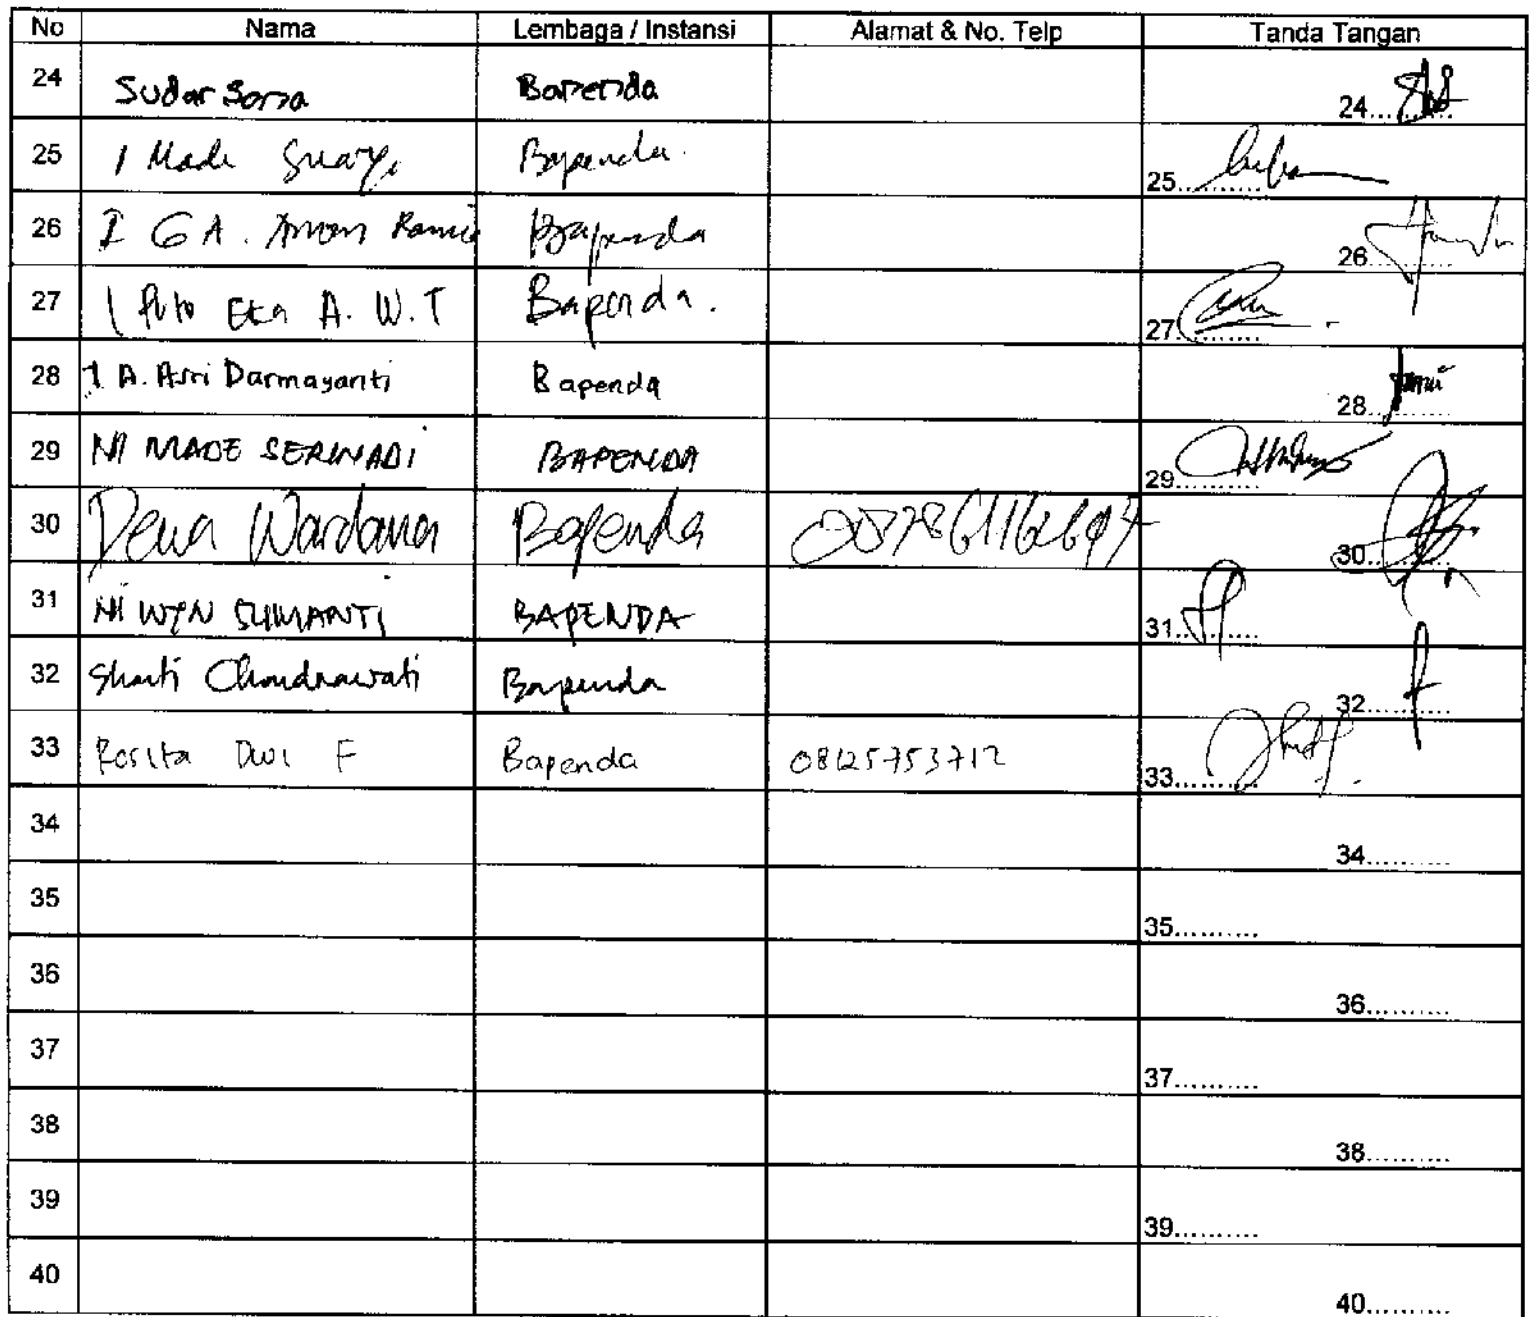 No Nama Lembaga / Instansi Alamat & No. Telp Tanda Tangan
24 Sudarsona Bapenda 24..........
25 I Made Bapenda. 25..........
26 I GA. Bapenda 26..........
27 I Putu Eka A. W. T Bapenda. 27..........
28 I A. Asri Darmayanti Bapenda 28..........
29 NI MADE SERINADI BAPENDA 29..........
30 Dewa Wardana Bapenda 30..........
31 NI WYN SUMANTI BAPENDA 31..........
32 Shanti Chandrawati Bapenda 32..........
33 Rosita Dwi F Bapenda 08125753712 33..........
34 34..........
35 35..........
36 36..........
37 37..........
38 38..........
39 39..........
40 40..........